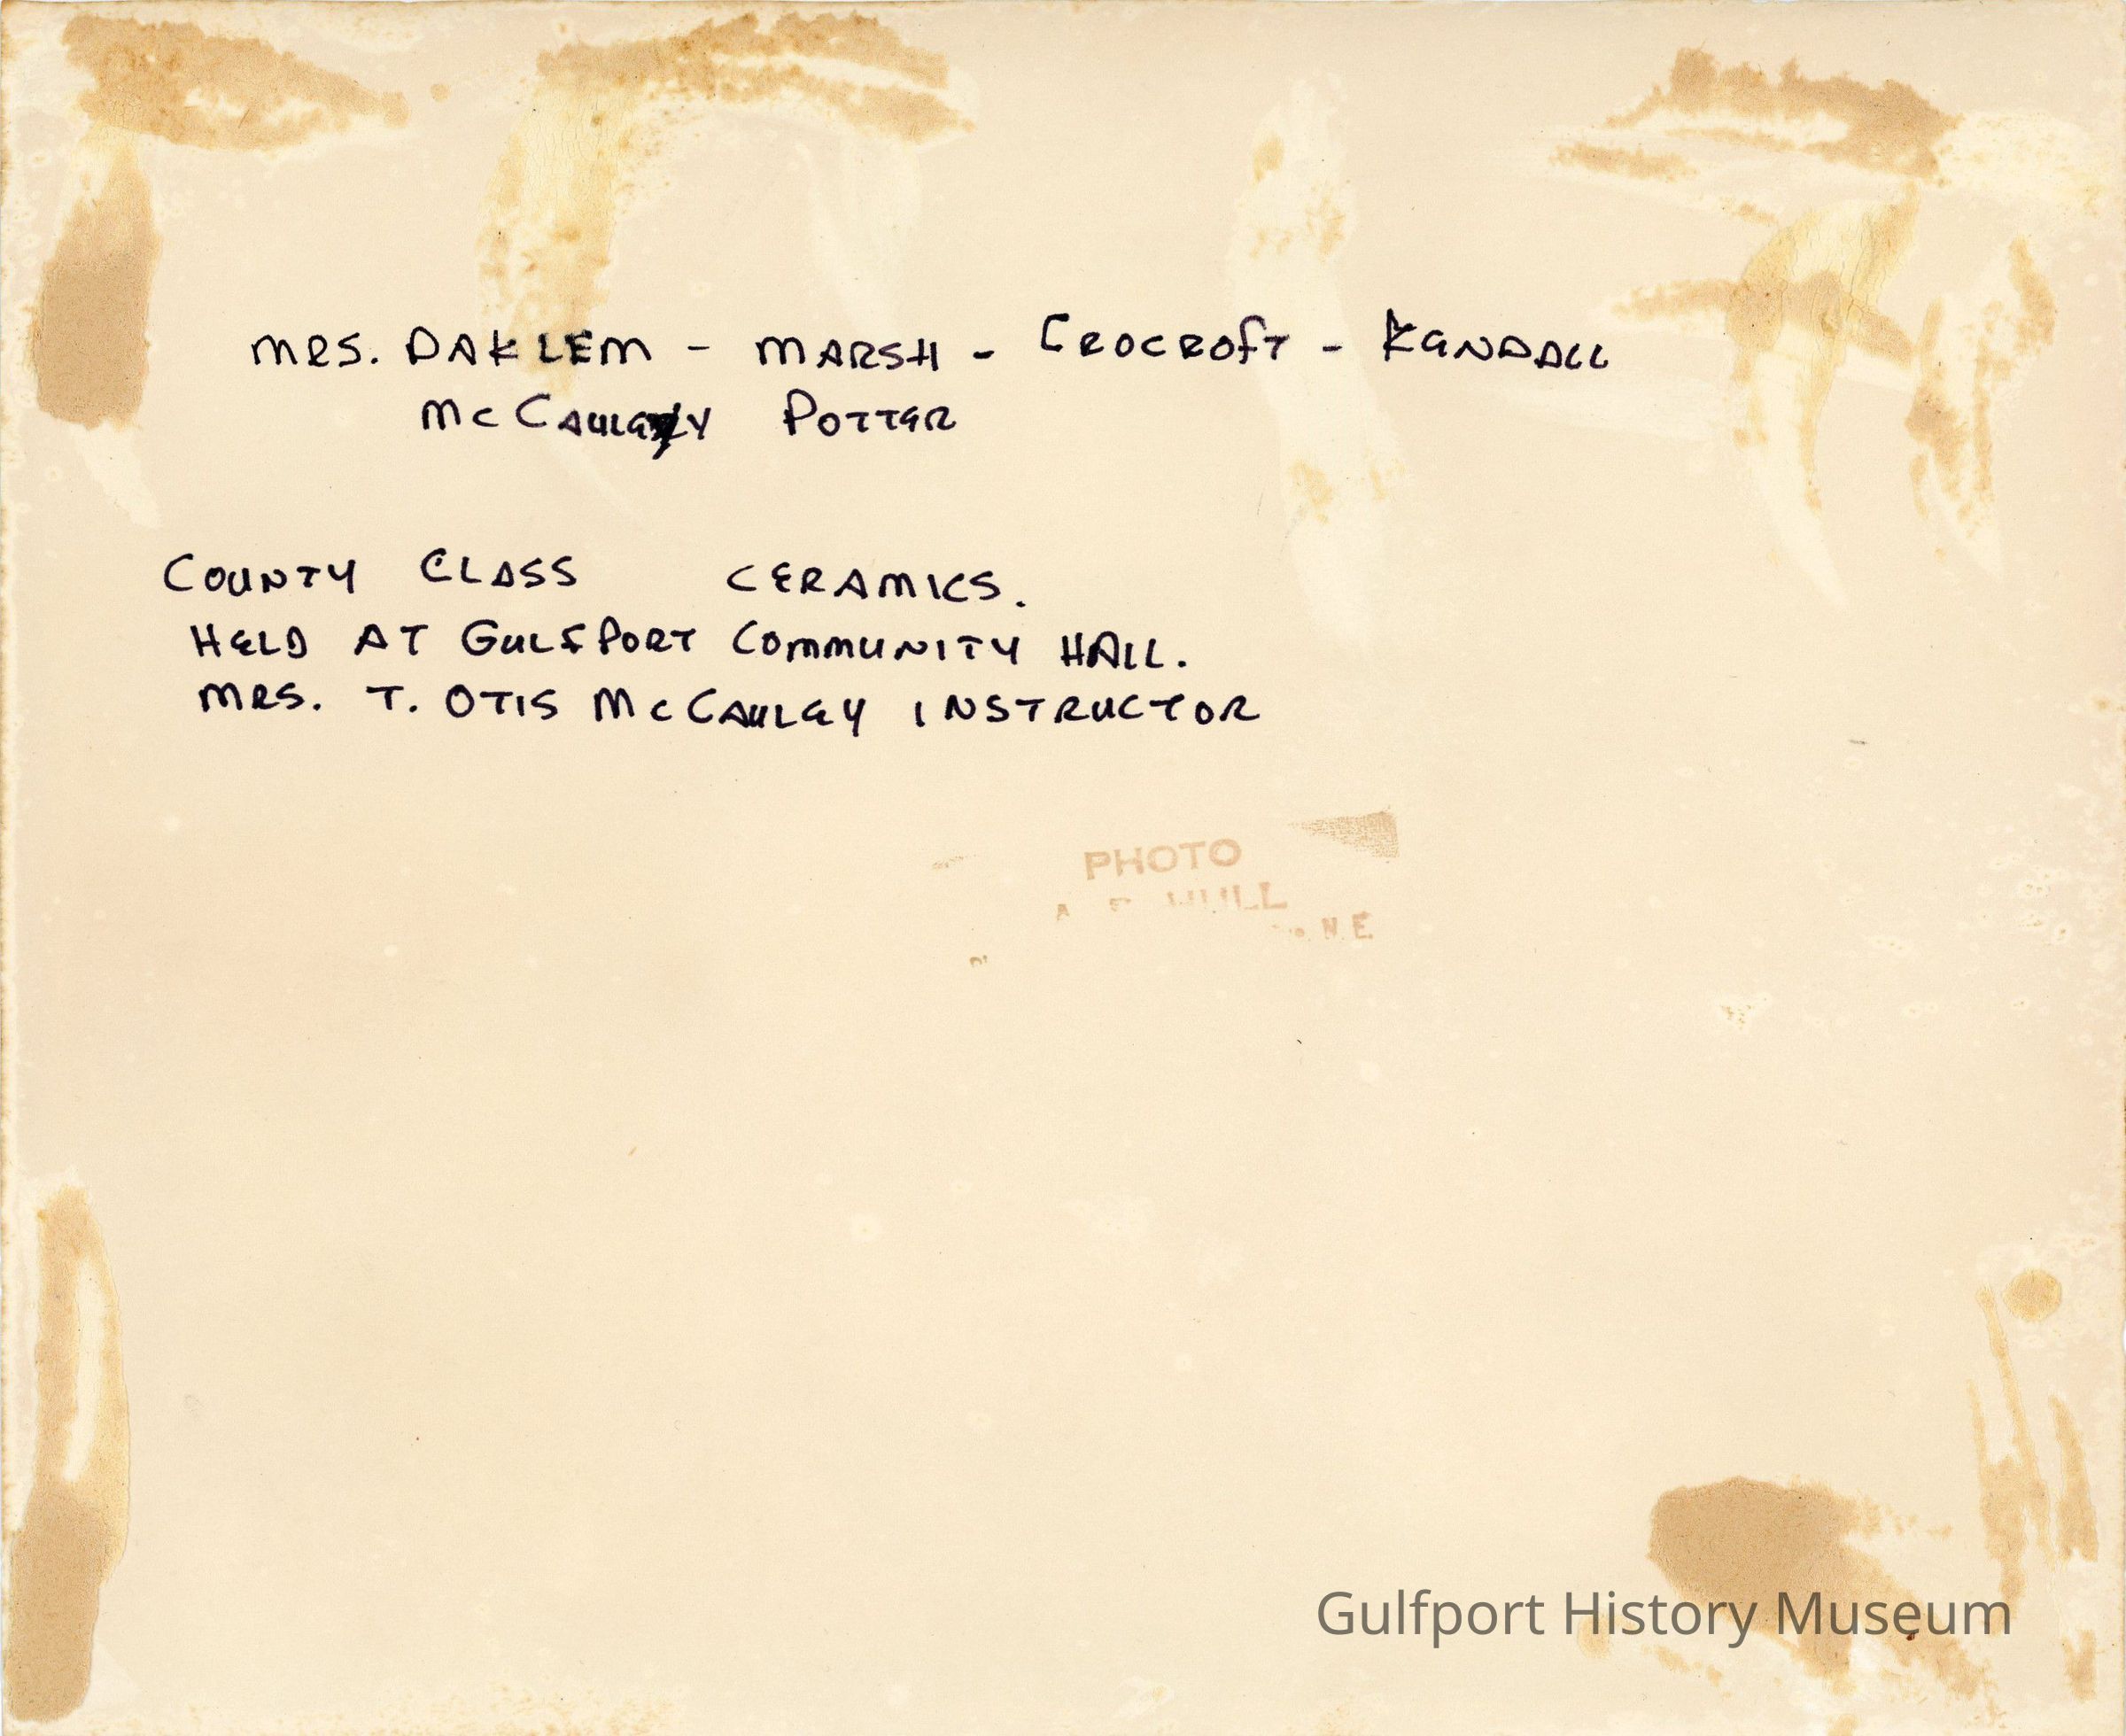 MRS. DAKLEM - MARSH - CROCROFT - KENDALL
McCAULEY POTTER
COUNTY CLASS CERAMICS.
HELD AT GULFPORT COMMUNITY HALL.
MRS. T. OTIS McCAULEY INSTRUCTOR
PHOTO
N.E.
Gulfport History Museum